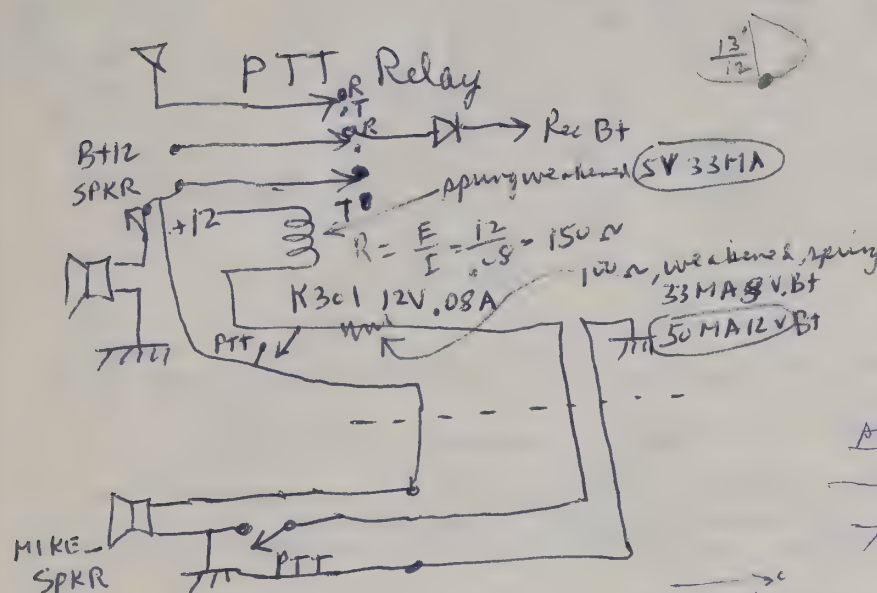 PTT Relay
13'
12
R
T
R
B+12
Rec B+
SPKR
spring weakened 5V 33MA
T
+12
R = E/I = 12/.08 = 150 Ω
K301 12V .08A
100 Ω, weakened, spring
33 MA 8 V. B+
50 MA 12 V B+
PTT
PTT
MIKE
SPKR